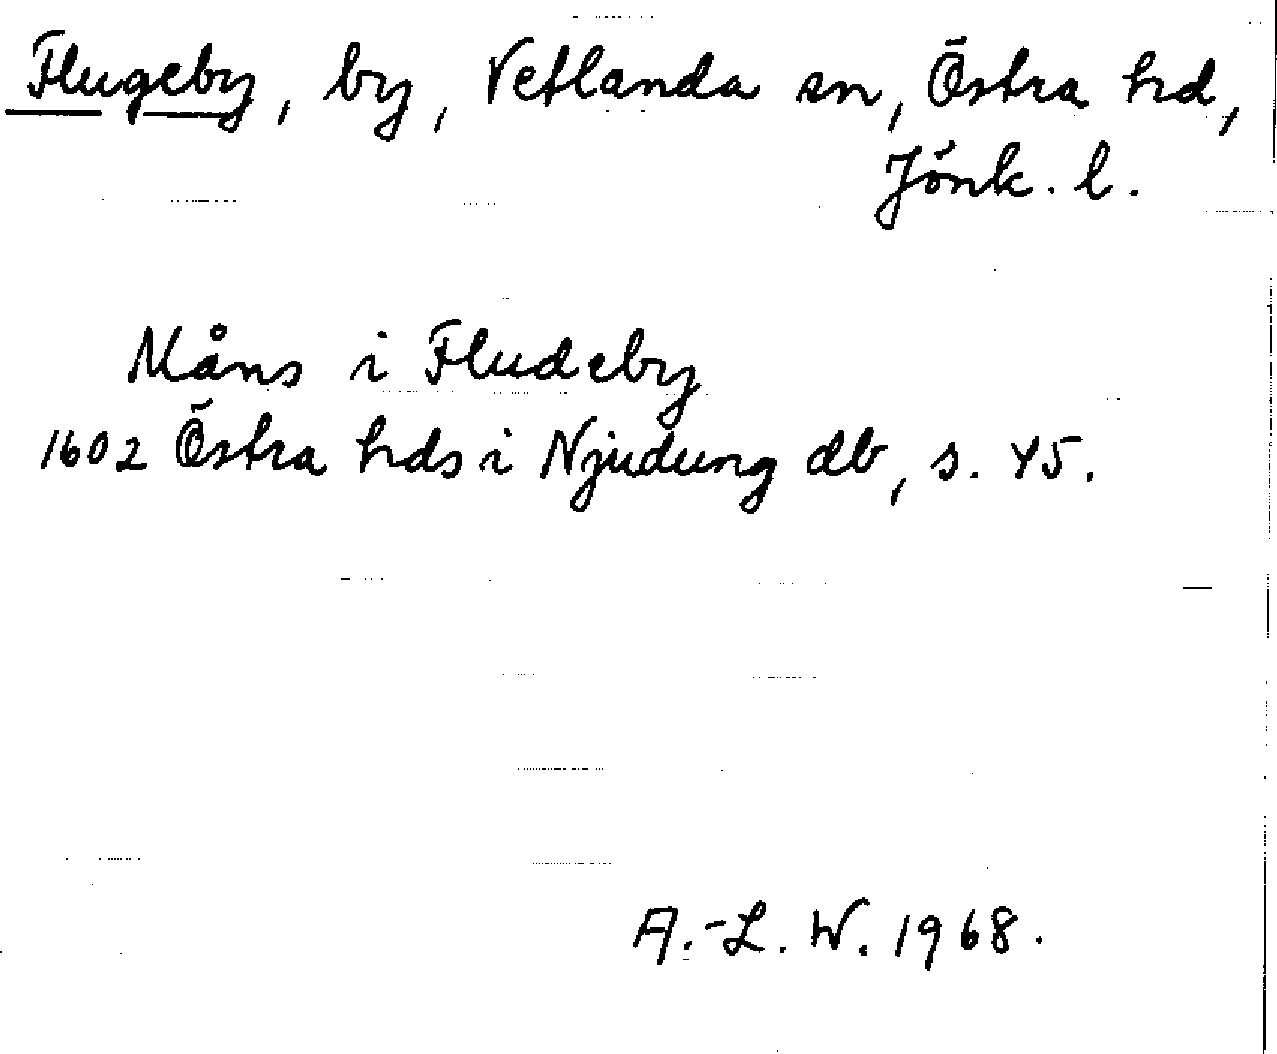 Flugeby, by, Vetlanda sn, Östra hd,
Jönk. l.
Måns i Fludeby
1602 Östra hds i Njudung db, s. 45.
A.-L. W. 1968.